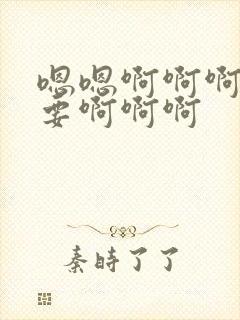 嗯嗯啊啊啊
要啊啊啊
秦时了了